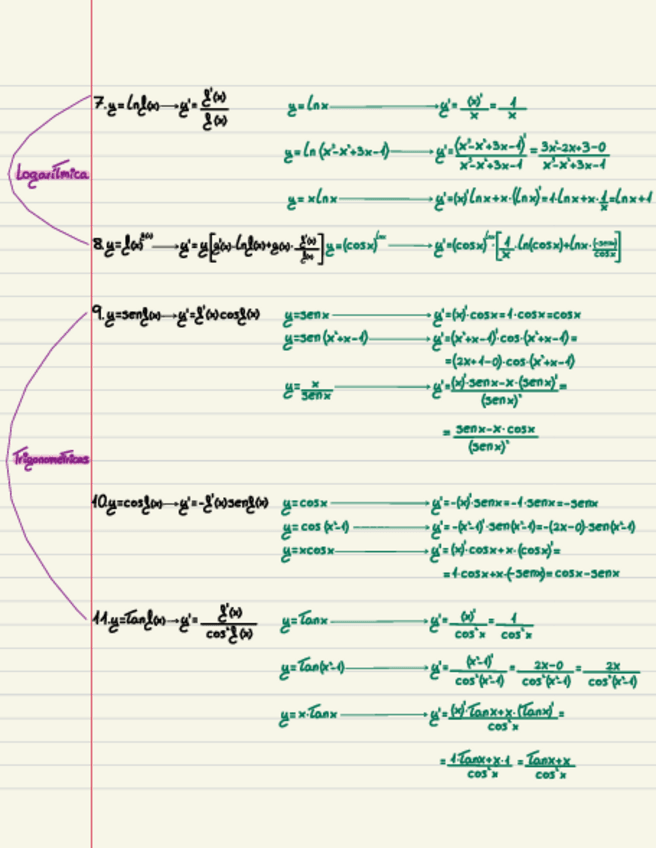 7. y=lnf(x)→y'=f'(x)/f(x) y=lnx→y'=(x)'/x=1/x
y=ln(x³-x²+3x-1)→y'=(x³-x²+3x-1)'/x³-x²+3x-1=3x²-2x+3-0/x³-x²+3x-1
Logarítmica
y=xlnx→y'=(x)'lnx+x·(lnx)'=1·lnx+x·1/x=lnx+1
8. y=f(x)^g(x)→y'=y[g'(x)·lnf(x)+g(x)·f'(x)/f(x)] y=(cosx)^lnx→y'=(cosx)^lnx·[1/x·ln(cosx)+lnx·(-senx)/cosx]
9. y=senf(x)→y'=f'(x)cosf(x) y=senx→y'=(x)'·cosx=1·cosx=cosx
y=sen(x²+x-1)→y'=(x²+x-1)'·cos·(x²+x-1)=
=(2x+1-0)·cos·(x²+x-1)
y=x/senx→y'=(x)'·senx-x·(senx)'/(senx)²=
=senx-x·cosx/(senx)²
Trigonométricas
10. y=cosf(x)→y'=-f'(x)senf(x) y=cosx→y'=-(x)'·senx=-1·senx=-senx
y=cos(x²-1)→y'=-(x²-1)'·sen(x²-1)=-(2x-0)·sen(x²-1)
y=xcosx→y'=(x)'·cosx+x·(cosx)'=
=1·cosx+x·(-senx)=cosx-senx
11. y=Tanf(x)→y'=f'(x)/cos²f(x) y=Tanx→y'=(x)'/cos²x=1/cos²x
y=Tan(x²-1)→y'=(x²-1)'/cos²(x²-1)=2x-0/cos²(x²-1)=2x/cos²(x²-1)
y=x·Tanx→y'=(x)'·Tanx+x·(Tanx)'/cos²x=
=1·Tanx+x·1/cos²x=Tanx+x/cos²x